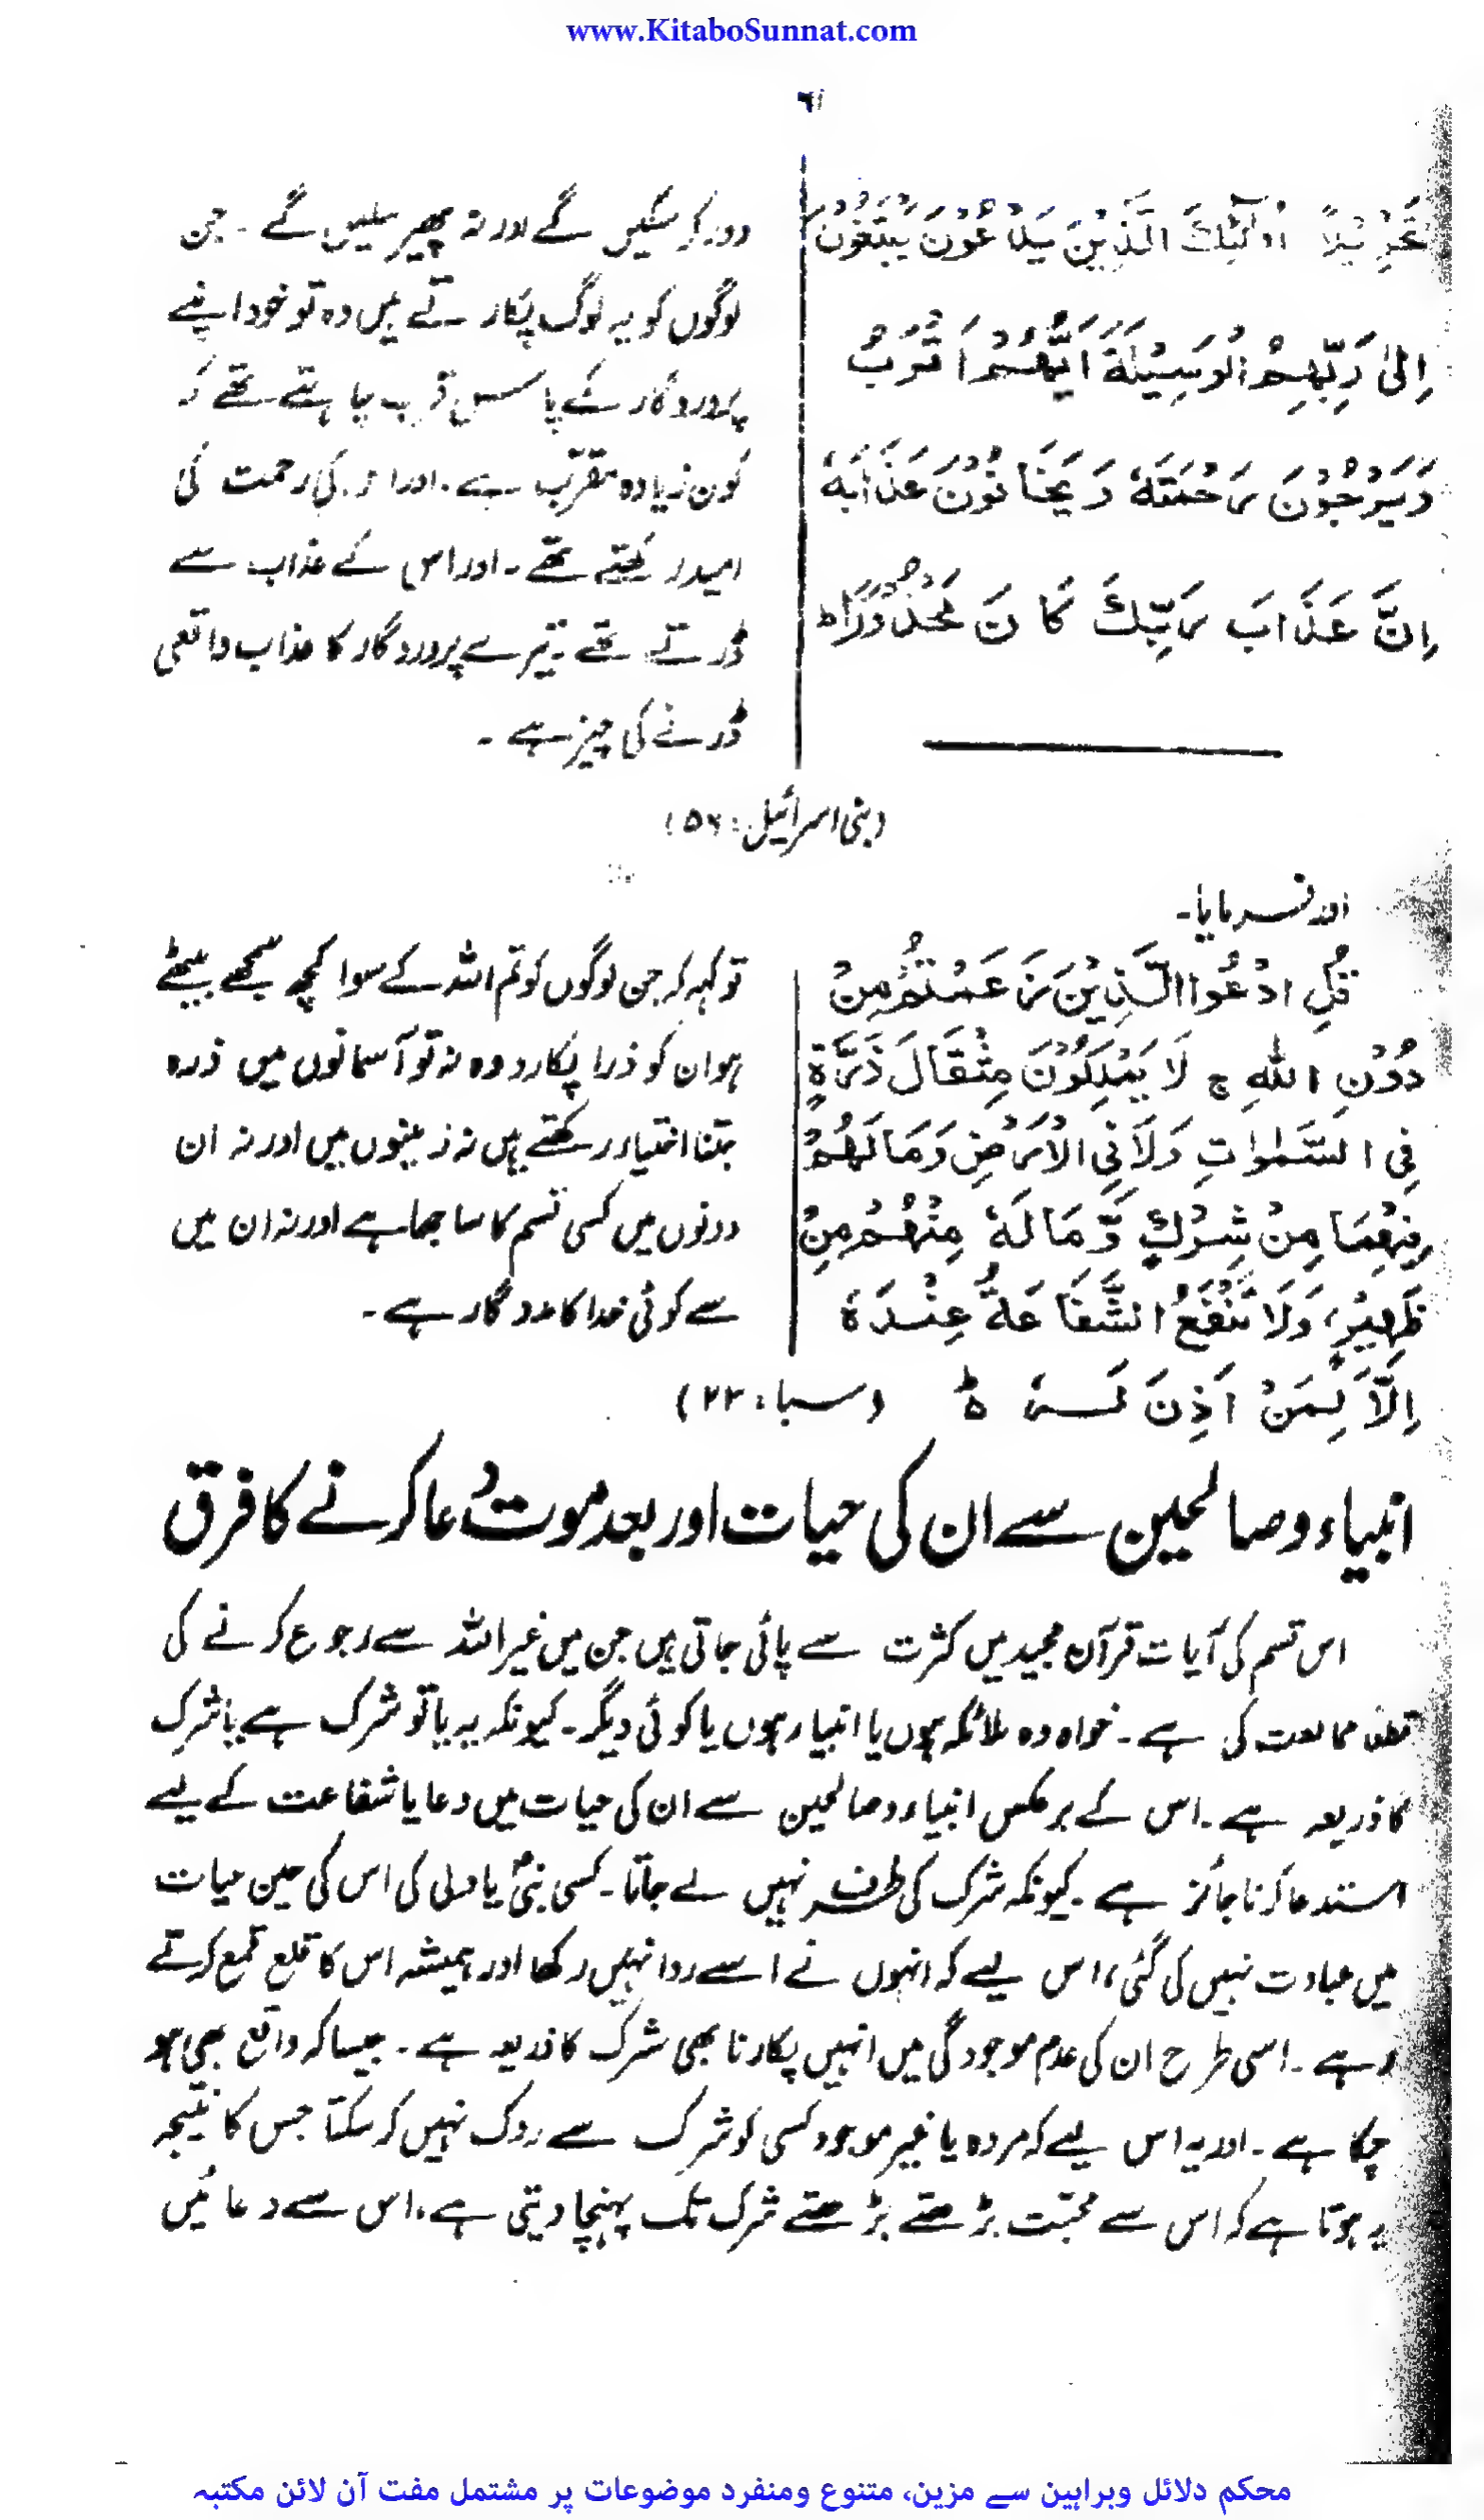 www.KitaboSunnat.com
٦١
تَحْوِيْلًا اُولٰٓئِكَ الَّذِيْنَ يَدْعُوْنَ يَبْتَغُوْنَ
اِلٰى رَبِّهِمُ الْوَسِيْلَةَ اَيُّهُمْ اَقْرَبُ
وَيَرْجُوْنَ رَحْمَتَهٗ وَيَخَافُوْنَ عَذَابَهٗ
اِنَّ عَذَابَ رَبِّكَ كَانَ مَحْذُوْرًا ط
دور کر سکیں گے اور نہ پھیر سکیں گے ۔ جن
لوگوں کو یہ لوگ پکارتے ہیں وہ تو خود اپنے
پروردگار کے پاس قرب چاہتے تھے کہ
کون زیادہ مقرّب ہے ۔ اور اس کی رحمت کی
امید رکھتے تھے ۔ اور اس کے عذاب سے
ڈرتے تھے ۔ تیرے پروردگار کا عذاب واقعی
ڈرنے کی چیز ہے ۔
(بنی اسرائیل : ۵۶)
اور فرمایا ۔
قُلِ ادْعُوا الَّذِيْنَ زَعَمْتُمْ مِنْ
دُوْنِ اللّٰهِ ج لَا يَمْلِكُوْنَ مِثْقَالَ ذَرَّةٍ
فِي السَّمٰوٰتِ وَلَا فِي الْاَرْضِ وَمَا لَهُمْ
فِيْهِمَا مِنْ شِرْكٍ وَّمَا لَهٗ مِنْهُمْ مِنْ
ظَهِيْرٍ، وَلَا تَنْفَعُ الشَّفَاعَةُ عِنْدَهٗ
اِلَّا لِمَنْ اَذِنَ لَهٗ ط (سبا : ۲۲)
تو کہہ کہ جن لوگوں کو تم اللہ کے سوا کچھ سمجھے بیٹھے
ہو ان کو ذرا پکارو وہ نہ تو آسمانوں میں ذرہ
جتنا اختیار رکھتے ہیں نہ زمینوں میں اور نہ ان
دونوں میں کسی قسم کا ساجھا ہے اور نہ ان میں
سے کوئی خدا کا مددگار ہے ۔
انبیاء و صالحین سے ان کی حیات اور بعد موت دُعا کرنے کا فرق
اس قسم کی آیات قرآن مجید میں کثرت سے پائی جاتی ہیں جن میں غیر اللہ سے رجوع کرنے کی
قطعاً ممانعت کی ہے ۔ خواہ وہ ملائکہ ہوں یا انبیاء ہوں یا کوئی دیگر ۔ کیونکہ یہ یا تو شرک ہے یا شرک
کا ذریعہ ہے ۔ اس کے برعکس انبیاء و صالحین سے ان کی حیات میں دعا یا شفاعت کے لیے
استدعا کرنا جائز ہے ۔ کیونکہ شرک کی طرف نہیں لے جاتا ۔ کسی نبیؑ یا ولی کی اس کی حین حیات
میں عبادت نہیں کی گئی، اس لیے کہ انہوں نے اسے روا نہیں رکھا اور ہمیشہ اس کا قلع قمع کرتے
رہے ۔ اسی طرح ان کی عدم موجودگی میں انہیں پکارنا بھی شرک کا ذریعہ ہے ۔ جیسا کہ واقع بھی ہو
چکا ہے ۔ اور یہ اس لیے کہ مردہ یا غیر موجود کسی کو شرک سے روک نہیں کر سکتا جس کا نتیجہ
یہ ہوتا ہے کہ اس سے محبّت بڑھتے بڑھتے شرک تک پہنچا دیتی ہے، اس سے دعائیں
محکم دلائل وبراہین سے مزین، متنوع ومنفرد موضوعات پر مشتمل مفت آن لائن مکتبہ